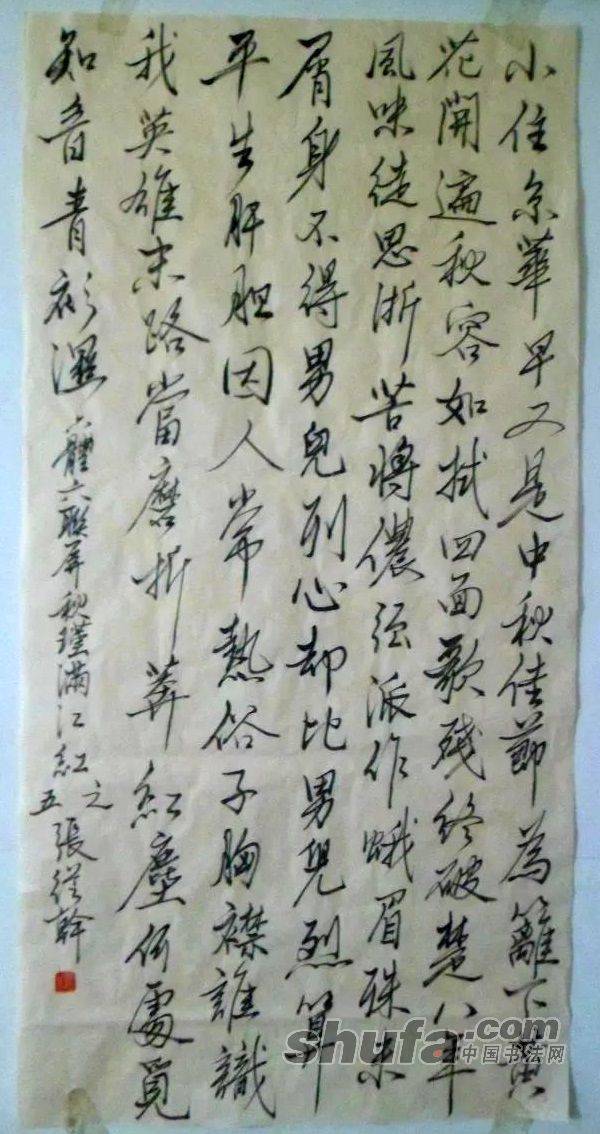 小住京華早又是中秋佳節為籬下黃
花開遍秋容如拭四面歌殘終破楚八年
風味徒思浙苦將儂强派作蛾眉殊未
屑身不得男兒列心却比男兒烈算
平生肝胆因人常熱俗子胸襟誰識
我英雄末路當磨折莽紅塵何處覓
知音青衫濕 六體六聯屏秋瑾滿江紅之五 張從幹
shufa.com
中国书法网